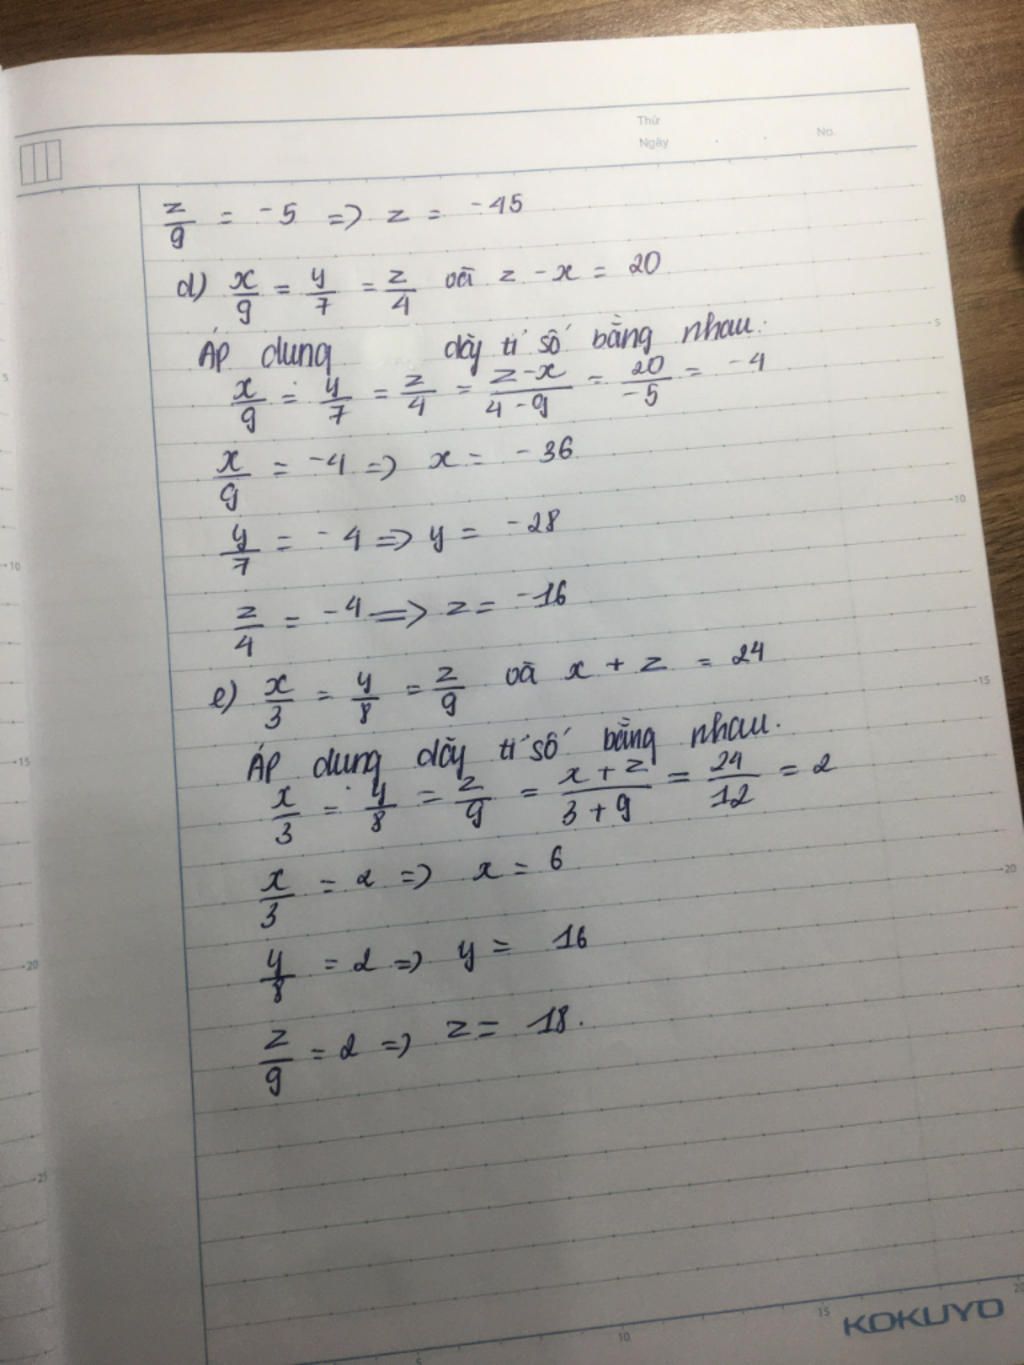 Thứ
Ngày . . No.
z/9 = -5 => z = -45
d) x/9 = y/7 = z/4 và z - x = 20
Áp dụng dãy tỉ số bằng nhau:
x/9 = y/7 = z/4 = (z-x)/(4-9) = 20/-5 = -4
x/9 = -4 => x = -36
y/7 = -4 => y = -28
z/4 = -4 => z = -16
e) x/3 = y/8 = z/9 và x + z = 24
Áp dụng dãy tỉ số bằng nhau.
x/3 = y/8 = z/9 = (x+z)/(3+9) = 24/12 = 2
x/3 = 2 => x = 6
y/8 = 2 => y = 16
z/9 = 2 => z = 18.
KOKUYO